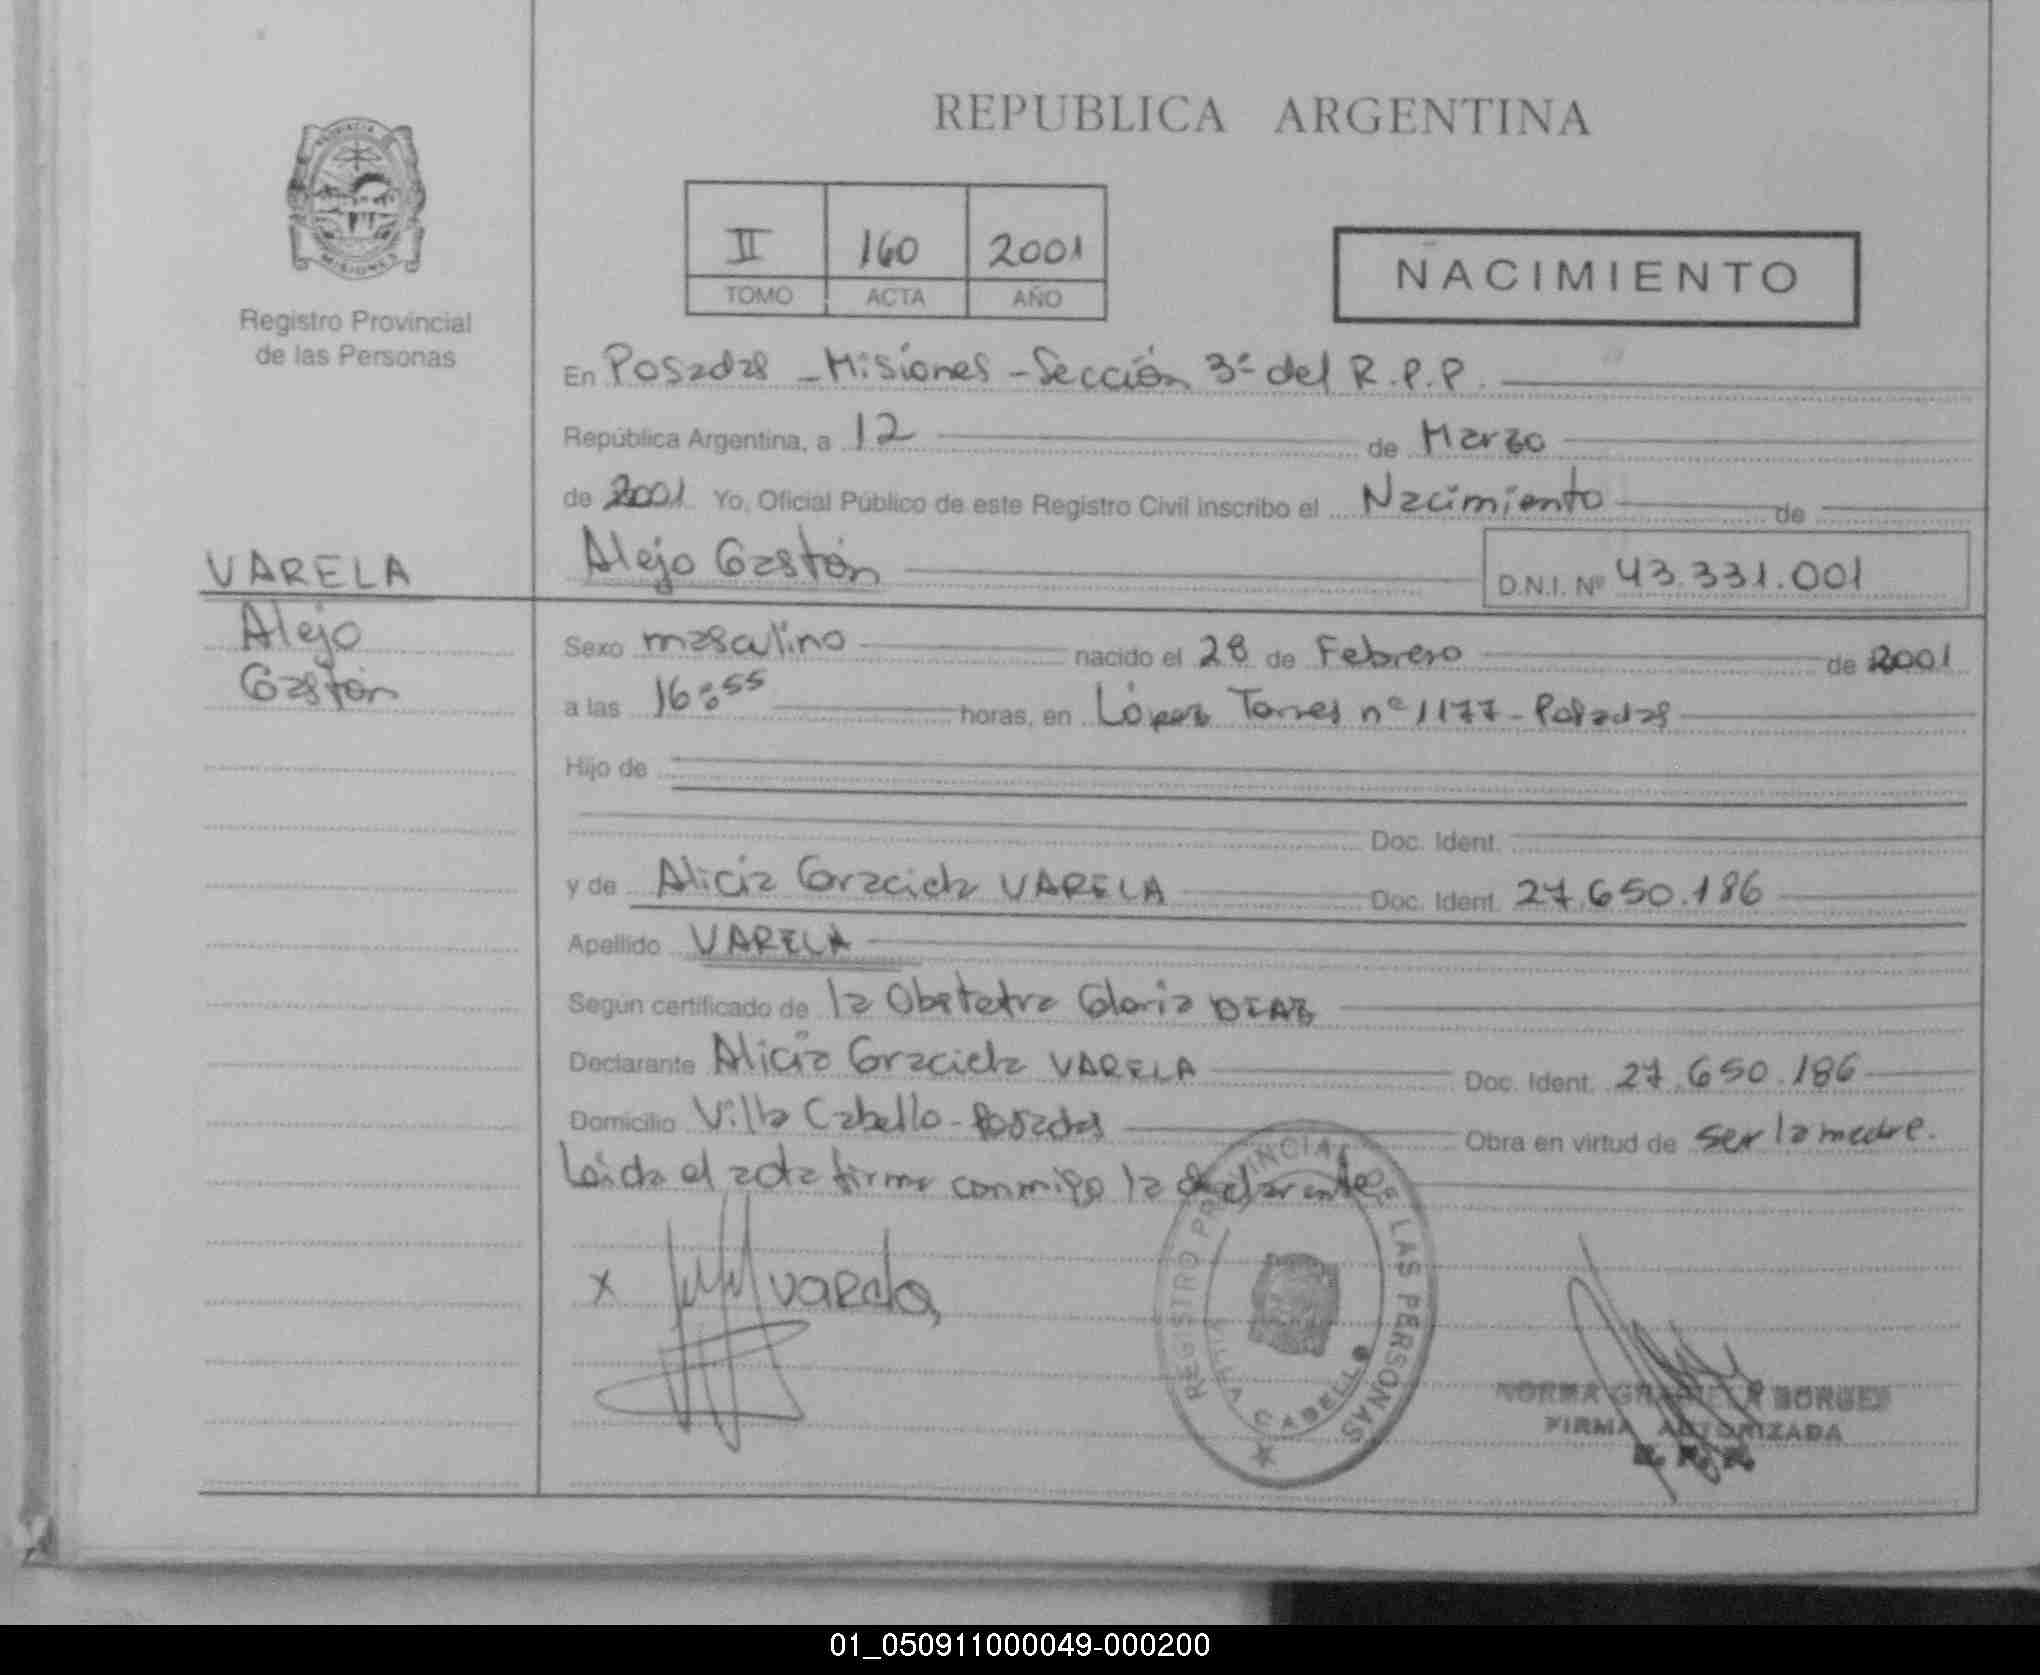 REPUBLICA ARGENTINA
PROVINCIA
MISIONES
Registro Provincial
de las Personas
II 160 2001
TOMO ACTA AÑO
NACIMIENTO
En Posadas - Misiones - Sección 3ª del R.P.P.
República Argentina, a 12 de Marzo
de 2001 Yo, Oficial Público de este Registro Civil inscribo el Nacimiento de
VARELA
Alejo
Gastón
Alejo Gastón D.N.I. Nº 43.331.001
Sexo masculino nacido el 28 de Febrero de 2001
a las 16:55 horas, en López Torres nº 1177 - Posadas
Hijo de
Doc. Ident.
y de Alicia Graciela VARELA Doc. Ident. 27.650.186
Apellido VARELA
Según certificado de la Obstetra Gloria DIAZ
Declarante Alicia Graciela VARELA Doc. Ident. 27.650.186
Domicilio Villa Cabello - Posadas Obra en virtud de ser la madre.
Leída el acta firma conmigo la declarante
x Varela
REGISTRO PROVINCIAL DE LAS PERSONAS
VILLA CABELLO
NORMA GRACIELA BORGES
FIRMA AUTORIZADA
01_050911000049-000200